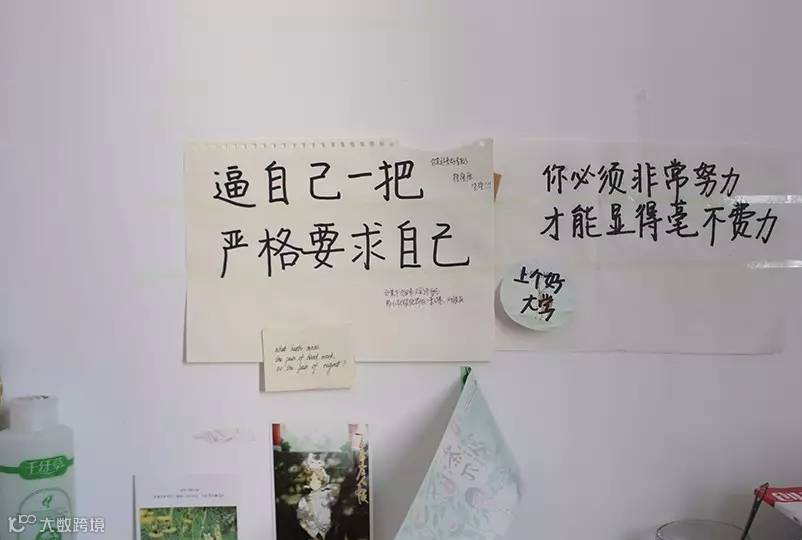 逼自己一把
严格要求自己
你必须非常努力
才能显得毫不费力
上个好
大学
What hurts more
the pain of hard work
or the pain of regret?
千纤草
大数跨境